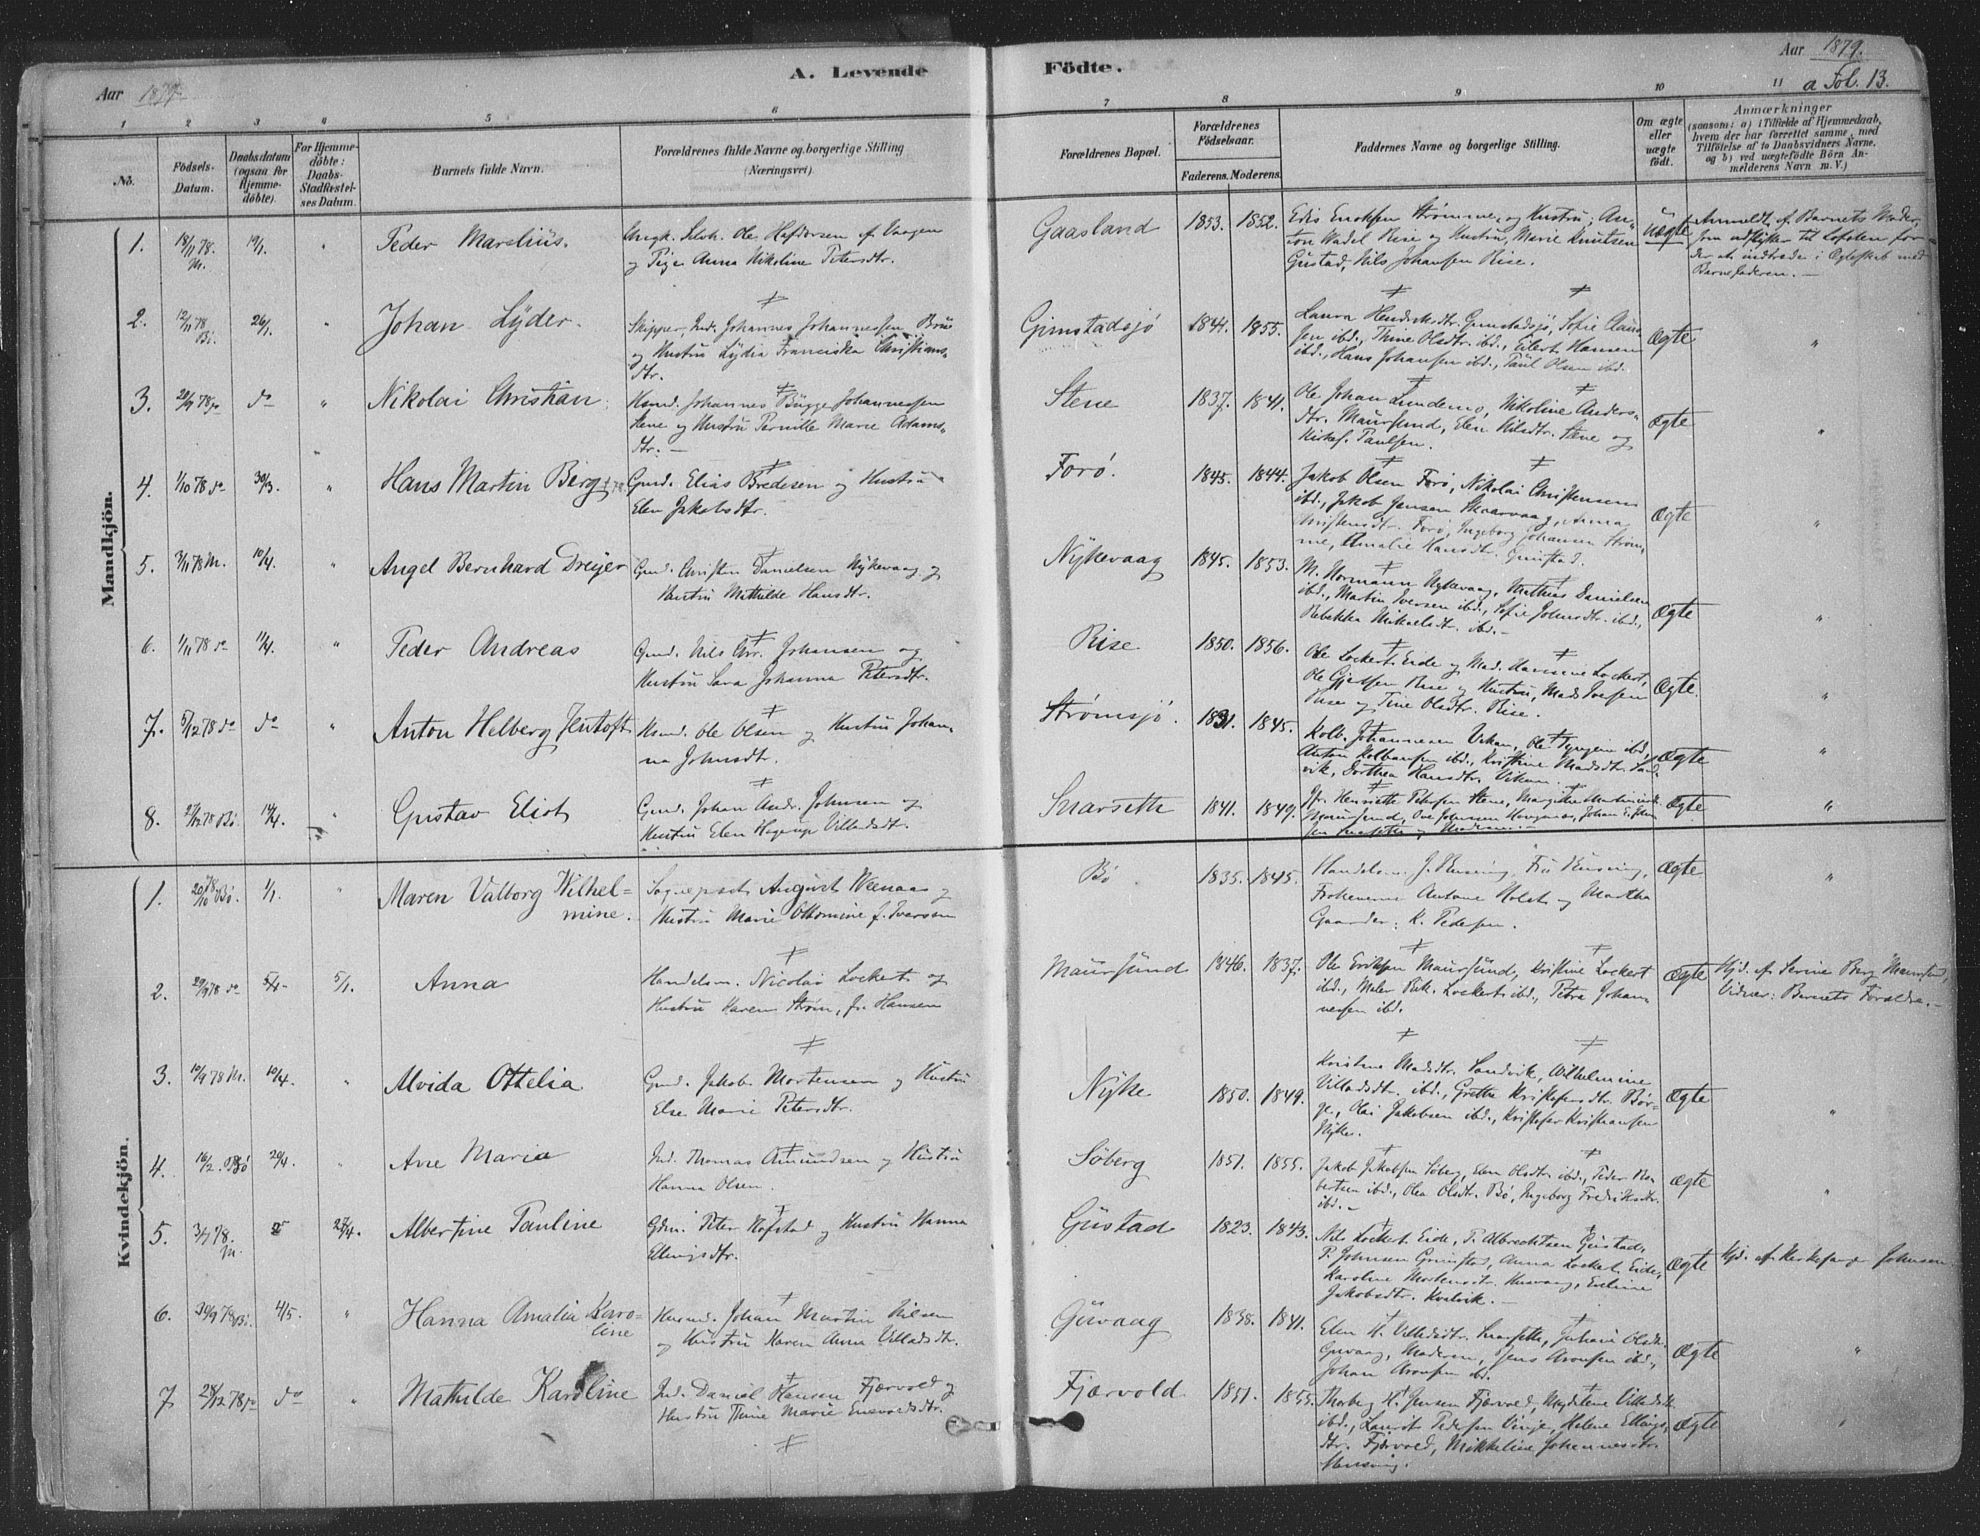 A. Levende Födte.
Aar 1879.
Aar 1879.
a Fol. 13.
1 2 3 4 5 6 7 8 9 10 11
No.
Födsels-Datum.
Daabsdatum (ogsaa for Hjemmedöbte).
For Hjemmedöbte: Daabs-Stadfæstelses Datum.
Barnets fulde Navn.
Forældrenes fulde Navne og borgerlige Stilling (Næringsvei).
Forældrenes Bopæl.
Forældrenes Födselsaar.
Faderens. Moderens.
Faddernes Navne og borgerlige Stilling.
Om ægte eller uægte födt.
Anmærkninger
(saasom: a) i Tilfælde af Hjemmedaab, hvem der har forrettet samme, med Tilföielse af to Daabsvidners Navne, og b) ved uægtefödte Börn Anmelderens Navn m. V.)
Mandkjön.
1. 18/11 78. M. 19/1. " Peder Marelius.
Ungk. Selvh. Ole Hefdorsen af Vaagen
og Pige Anna Nikoline Petersdtr.
Gaasland 1853. 1852.
Edis Enoksen Strømme og Hustru; An-
ton Wadel Rise og Hustru, Marie Knutsen
Gustad, Nils Johansen Rise.
Uægte
Anmeldt af Barnets Moder,
som udflytter til Lofoten for
der at indtræde i Ægteskab med
Barnefaderen. —
2. 12/11 78 Bö. 26/1. " Johan Lyder.
Skipper, Ind. Johannes Johannessen Brue
og Hustru Lydia Franciska Christians-
dtr.
Gimstadsjö 1844. 1855.
Laura Hendriksdtr. Gimstadsjö, Sofie Claus
sen ibd., Thine Olsdtr. ibd., Eilert Hansen
ibd., Hans Johansen ibd., Paul Olsen ibd.
Ægte "
3. 20/9 78 do do " Nikolai Christian.
Husmd. Johannes Bügge Johannessen
Stene og Hustru Pernille Marie Adams-
dtr. —
Stene 1837. 1841.
Ole Johan Lundemo, Nikoline Anders-
dtr. Maursund, Elen Nilsdtr. Stene og
Kirkes. Paulsen.
Ægte "
4. 1/10 78 do 30/3. " Hans Martin Berg
Gmd. Elias Bredesen og Hustru
Elen Jakobsdtr.
Forö. 1845. 1844.
Jakob Olsen Forö, Nikolai Christensen
ibd., Jakob Jensen Skaarvaag, Anna
Christensdtr. Forö, Ingeborg Johansen Strøm-
me, Amalie Hansdtr. Gimstad.
Ægte "
5. 3/11 78 M. 10/4. " Angel Bernhard Dreyer
Gmd. Christen Danielsen Nykevaag og
Hustru Mathilde Hansdtr.
Nykevaag 1845. 1853.
M. Normann Nykevaag, Mathias Danielsen
ibd., Martin Iversen ibd., Sofie Johnsdtr. ibd.,
Rebekka Mikaelsdtr. ibd. —
Ægte "
6. 1/11 78 do 11/4. " Peder Andreas
Gmd. Nils Chr. Johansen og
Hustru Sara Johanna Petersdtr.
Rise 1850. 1856.
Ole Lockert Eide og Mad. Lockert,
Ole Rise og Hustru, Mads Ivessen
Rise og Tine Olsdtr. Rise.
Ægte. "
7. 5/12 78 do do " Anton Helberg Jentoft
Husmd. Ole Olsen og Hustru Johan-
na Johnsdtr.
Strømsjö. 1831. 1845.
Kolb. Johannesen Vikan, Ole ibd.,
Anton Kolbensen ibd., Kristine Madsdtr. Sand-
vik, Dorthea Hansdtr. Vikan.
Ægte "
8. 27/12 78 Bö. 14/4. " Gustav Eliot
Gmd. Johan Andr. Johnsen og
Hustru Elen Hagerup Villadsdtr.
Snarseth 1841. 1849.
Jfr. Henriette Petersen Stene,
Maursund, Ove Johnsen
Ægte "
Kvindekjön.
1. 20/10 78 Bö. 1/1. " Maren Valborg Wilhel-
mine.
Sognepræst August Weenaas og
Hustru Marie Ottomine f. Iversen
Bö 1835. 1845.
Handelsm. J. Husving, Fru Husving,
Frøknerne Antone Holst og Martha
Gaarder; K. Pedersen.
Ægte "
2. 29/9 78 do 5/1. Anna
Handelsm. Nicolai Lockert og
Hustru Karen Strøm, f. Hansen
Maursund 1846. 1837.
Ole Eriksen Maursund, Kristine Lockert
ibd., Maler Rik. Lockert ibd., Petra Johan-
nessen ibd.
Ægte
Hjd. af Serine Berg
Vidner: Barnets Forældre. —
3. 10/9 78 M. 10/4. " Alvida Ottelia
Gmd. Jakob Mortensen og Hustru
Else Marie Petersdtr.
Nyke 1850. 1849.
Kristine Madsdtr. Sandvik, Wilhelmine
Villadsdtr. ibd., Grethe Kristofersdtr. Bör-
ge, Olai Jakobsen ibd., Kristofer Kristiansen
Nyke.
Ægte "
4. 16/2. Bö 20/4. " Ane Maria
Ind. Thomas Amundsen og Hustru
Hanna Olsen.
Söberg 1851. 1855.
Jakob Jakobsen Söberg, Elen Olsdtr. ibd., Peder Ro-
bertsen ibd., Olea Olsdtr. Bö, Ingeborg Fredriksdtr.
ibd. —
Ægte "
5. 3/1 78. M. 25/4. Albertine Pauline
Gdmd. Peter Hofstad og Hustru Hanna
Ellingsdtr.
Gustad 1823. 1843.
Nils Lockert Eide, P. Albrechtsen Gustad,
P. Johnsen Grimstad, Anna Lockert Eide,
Karoline Mortensdtr. Husvaag, Eveline
Jakobsdtr. Kvalvik. —
Ægte
Hjd. af Kirkesanger Johnsen
6. 30/9 78 Bö. 4/5. " Hanna Amalia Karo-
line
Husmd. Johan Martin Nilsen
og Hustru Karen Anna Villadsdtr.
Guvaag 1838. 1841.
Elen H. Villadsdtr. Snarseth, Olsdtr.
Guvaag, Maderen, Jens Aronsen ibd.,
Johan Aronsen ibd.
Ægte "
7. 28/12 78 do do " Mathilde Karoline
Ind. Daniel Hansen Fjærvold og
Hustru Thine Marie Enevoldsdtr.
Fjærvold 1851. 1855.
Thorberg H. Jensen Fjærvold, Magdelene Villadsdtr.
ibd., Laurits Pedersen Vinje, Helene Ellings-
dtr. Fjærvold, Mikkeline Johannesdtr.
Husving.
Ægte "